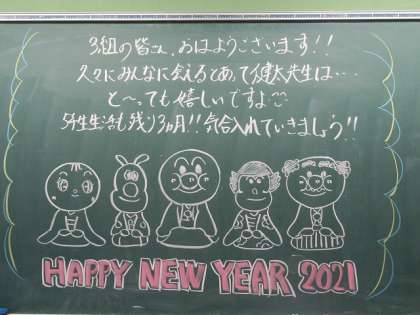 3組の皆さん、おはようございます!!
久々にみんなに会えるとあって健太先生は・・・
と〜っても嬉しいですよ♡
5年生生活も残り3ヵ月!! 気合入れていきましょう!!
HAPPY NEW YEAR 2021